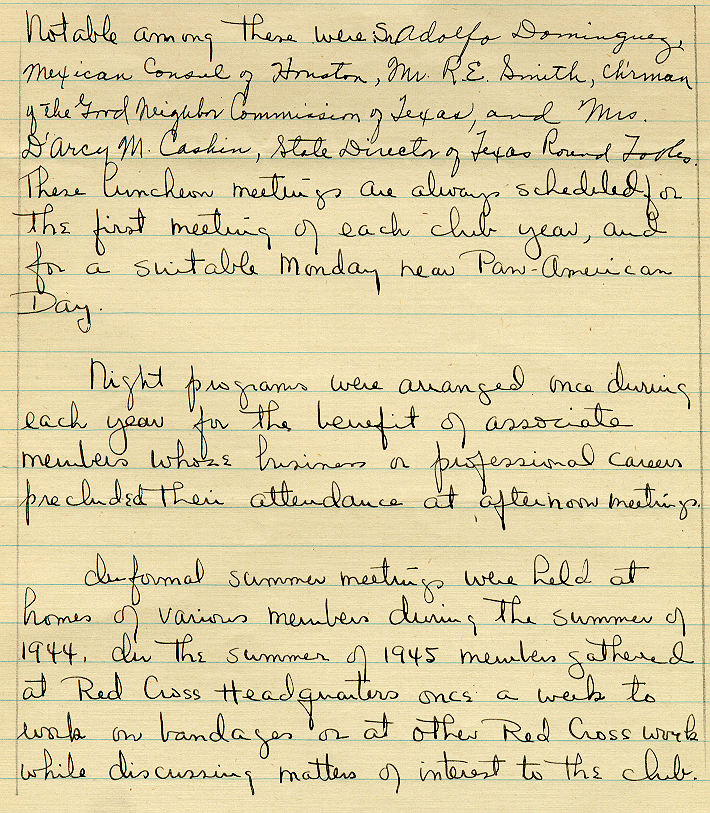 Notable among these were: Sr. Adolfo Dominguez,
Mexican Consul of Houston, Mr. R.E. Smith, Ch'rman
of the Good Neighbor Commission of Texas, and Mrs.
D'Arcy M. Cashin, State Director of Texas Round Tables.
These luncheon meetings are always scheduled for
the first meeting of each club year, and
for a suitable Monday near Pan-American
Day.
Night programs were arranged once during
each year for the benefit of associate
members whose business or professional careers
precluded their attendance at afternoon meetings.
Informal summer meetings were held at
homes of various members during the summer of
1944. In the summer of 1945 members gathered
at Red Cross Headquarters once a week to
work on bandages or at other Red Cross work
while discussing matters of interest to the club.